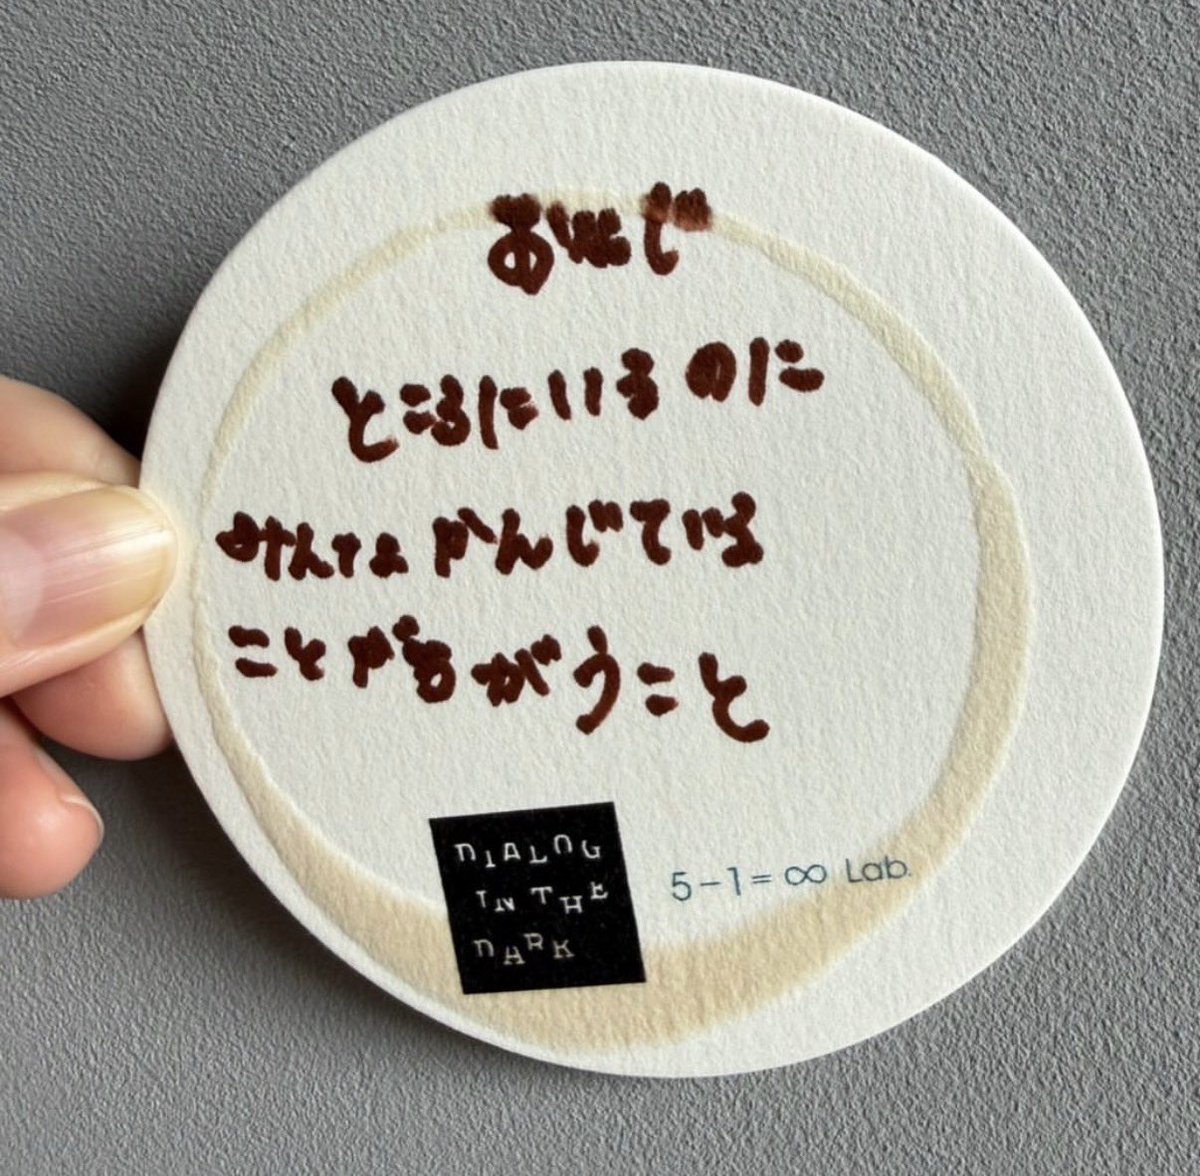 おなじ
ところにいるのに
みんなかんじている
ことがちがうこと
DIALOG
IN THE
DARK
5-1=∞ Lab.